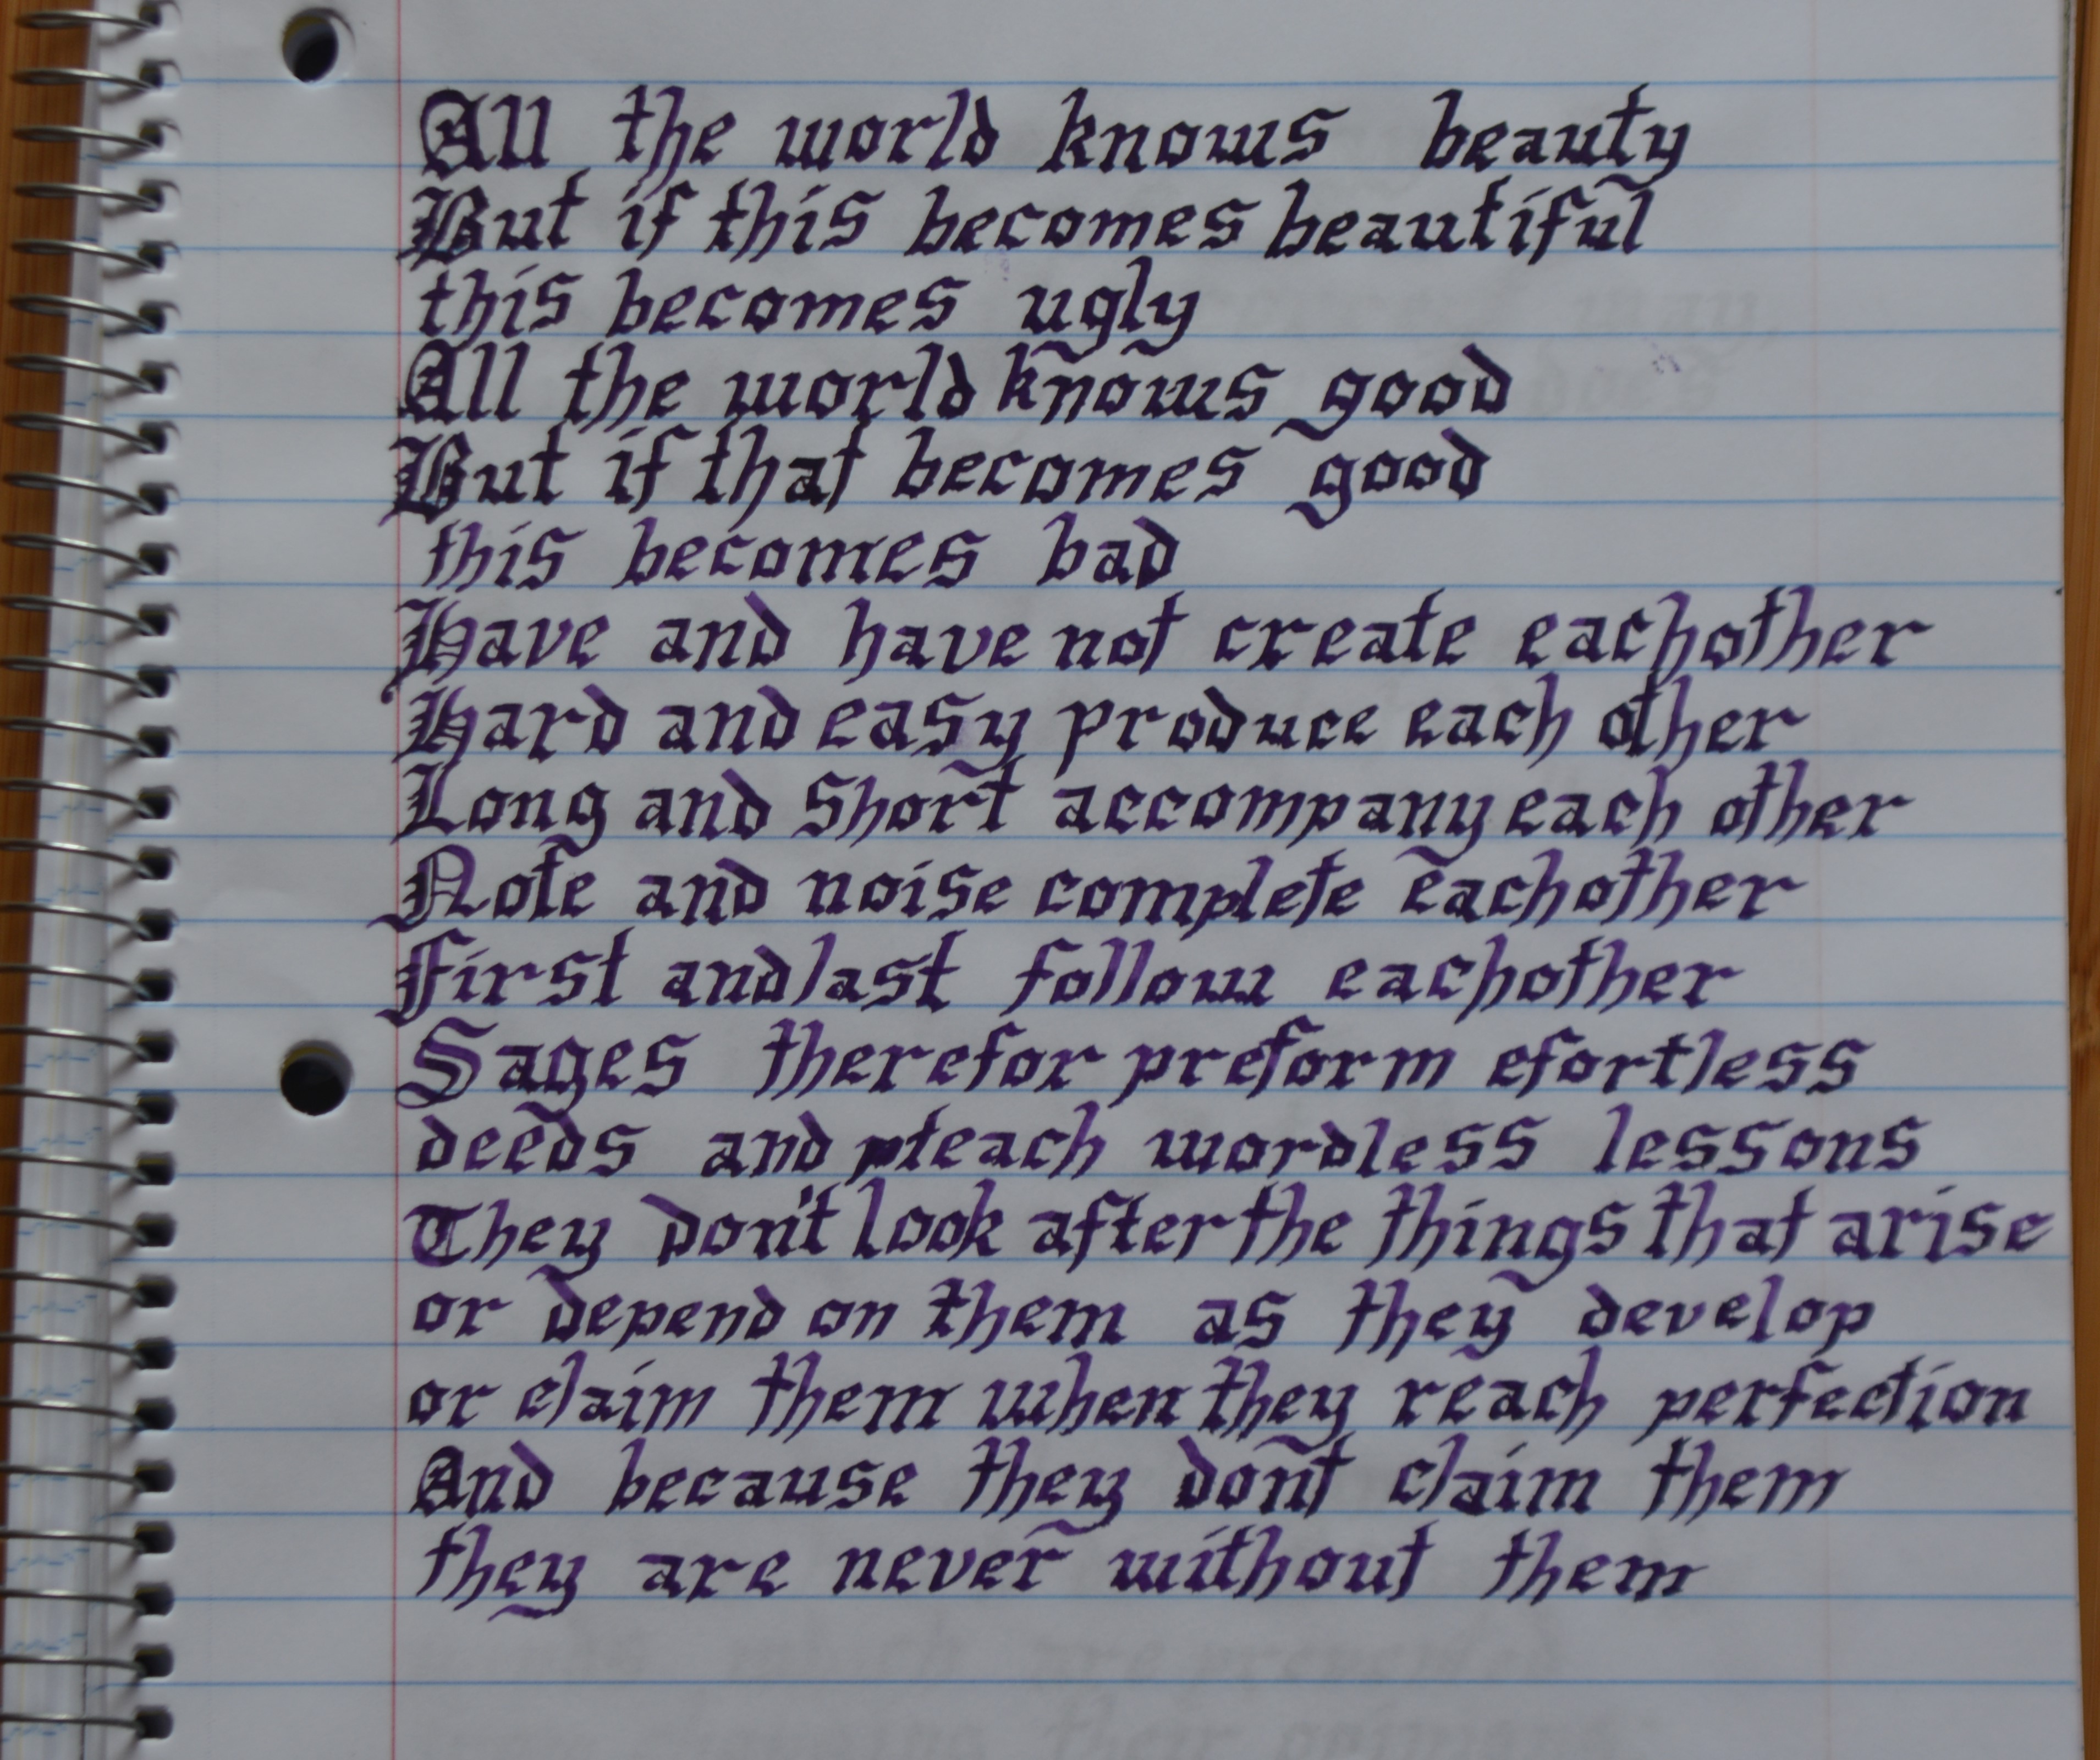 All the world knows beauty
But if this becomes beautiful
this becomes ugly
All the world knows good
But if that becomes good
this becomes bad
Have and have not create eachother
Hard and easy produce each other
Long and Short accompany each other
Note and noise complete eachother
First and last follow eachother
Sages therefor preform efortless
deeds and teach wordless lessons
They don't look after the things that arise
or depend on them as they develop
or claim them when they reach perfection
And because they don't claim them
they are never without them